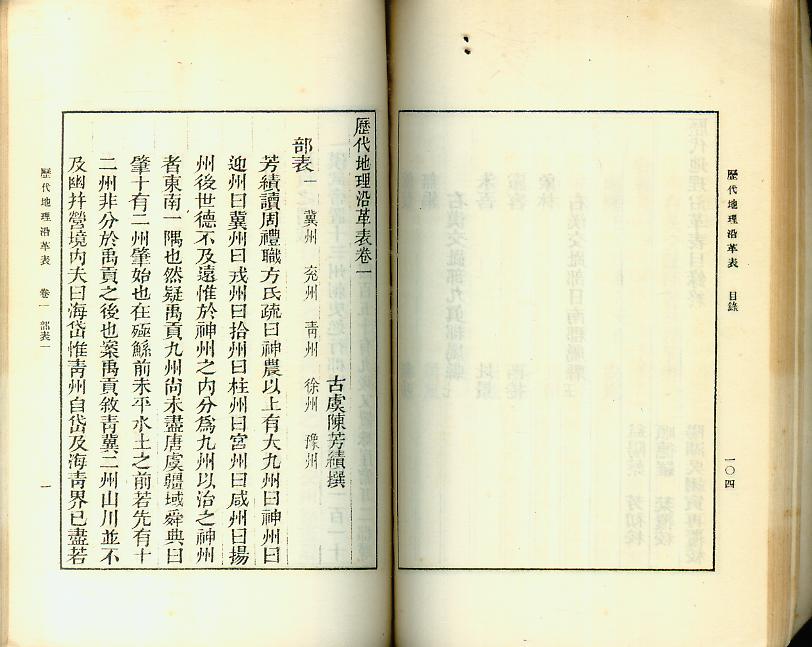 歷代地理沿革表 目錄
一〇四
歷代地理沿革表卷一
古虞陳芳績撰
部表一 冀州 兗州 青州 徐州 豫州
芳績讀周禮職方氏疏曰神農以上有大九州曰神州曰
迎州曰冀州曰戎州曰拾州曰柱州曰宮州曰咸州曰揚
州後世德不及遠惟於神州之內分爲九州以治之神州
者東南一隅也然疑禹貢九州尚未盡唐虞疆域舜典曰
肇十有二州肇始也在殛鯀前未平水土之前若先有十
二州非分於禹貢之後也案禹貢敘青冀二州山川並不
及幽幷營境內夫曰海岱惟青州自岱及海青界已盡若
歷代地理沿革表 卷一 部表一
一